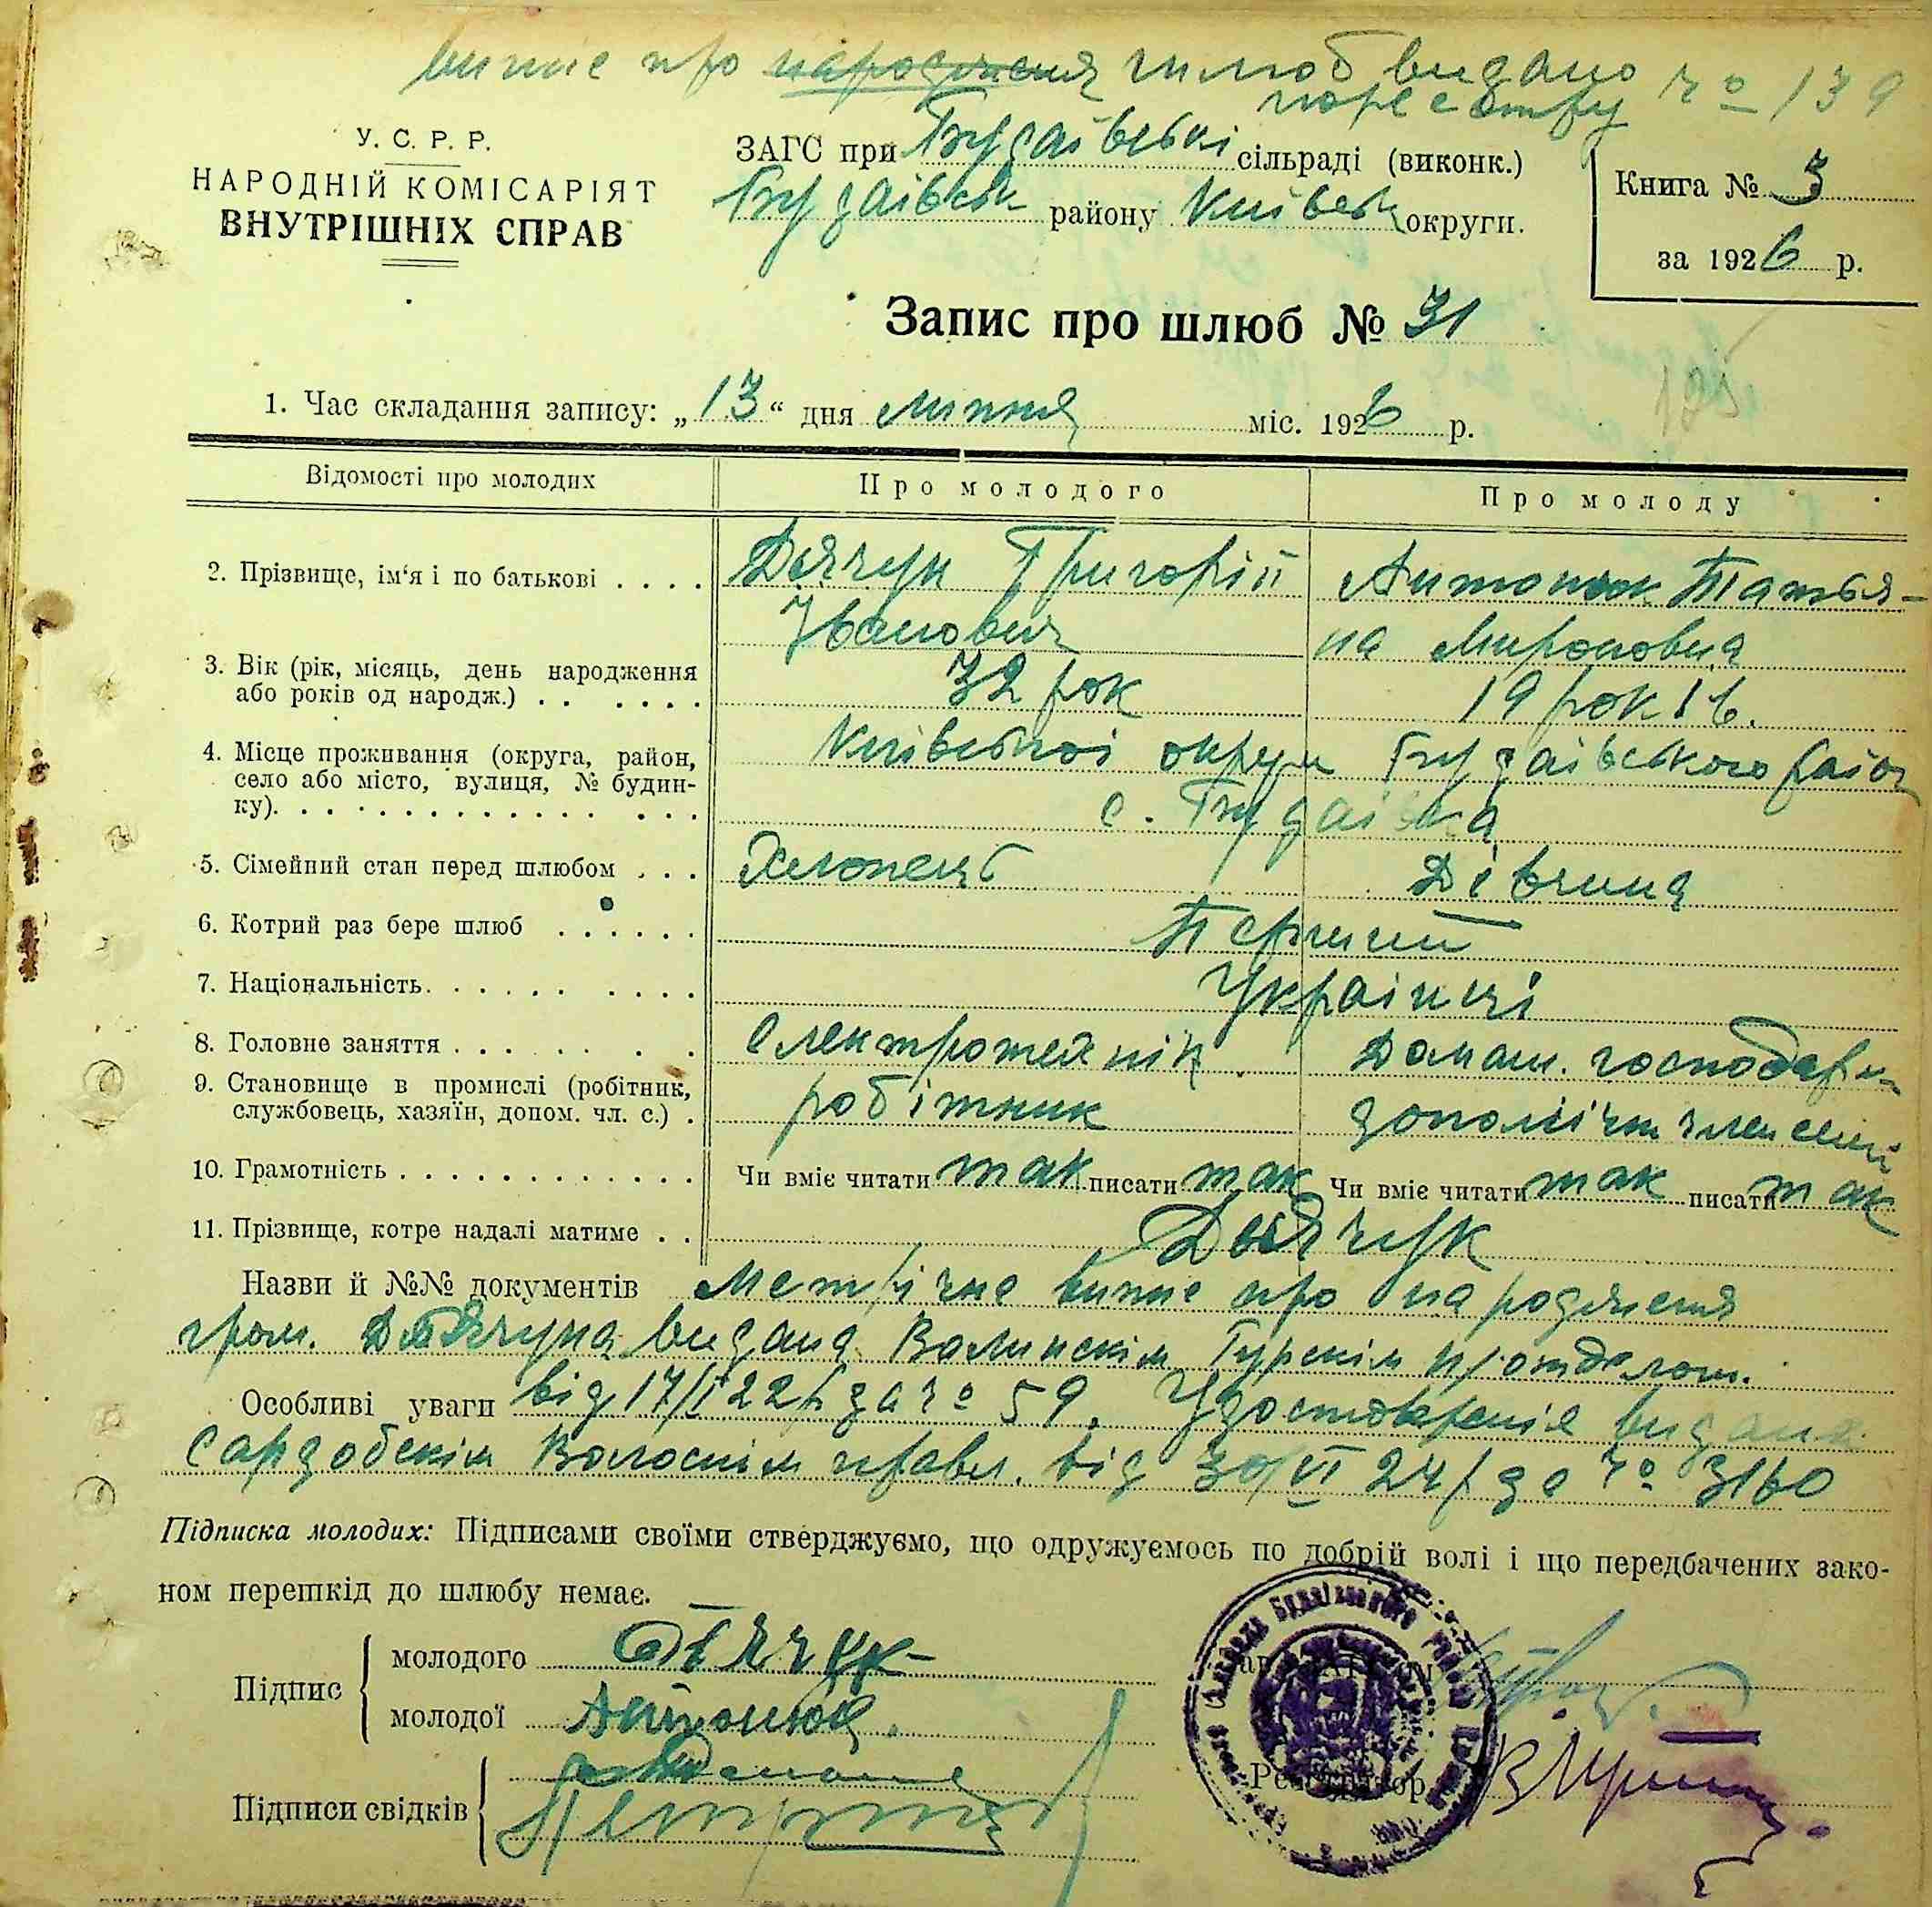 випис про народження шлюб видано
по реєстру № 139
У. С. Р. Р.
НАРОДНІЙ КОМІСАРІЯТ
ВНУТРІШНІХ СПРАВ
ЗАГС при Будаївські сільраді (виконк.)
Будаївськ району Київськ округи.
Книга № 3
за 1926 р.
Запис про шлюб № 31
1. Час складання запису: „13“ дня липня міс. 1926 р.
Відомості про молодих Про молодого Про молоду
2. Прізвище, ім‘я і по батькові . . . . Дячук Григорій Антонюк Татья-
Іванович на Мироновна
3. Вік (рік, місяць, день народження
або років од народж.) . . . . . . 32 рок 19 років.
4. Місце проживання (округа, район, Київської округи Будаївського район
село або місто, вулиця, № будин-
ку). . . . . . . . . . . . . . . с. Будаївка
5. Сімейний стан перед шлюбом . . . Хлопець Дівчина
6. Котрий раз бере шлюб . . . . . . Перший
7. Національність. . . . . . . . . . . Українці
8. Головне заняття . . . . . . . . Електротехнік Домаш. господарк
9. Становище в промислі (робітник,
службовець, хазяїн, допом. чл. с.) . робітник допоміжн член семьи
10. Грамотність . . . . . . . . . . . . . Чи вміє читати так писати так Чи вміє читати так писати так
11. Прізвище, котре надалі матиме . . Дьячук
Назви й №№ документів Метрічне випис про народження
гром. Дьячука видана Волинскім Гурскім
Особливі уваги від 17/I 22 р за № 59. Удостовереніе видане
Сардобскім Волоснім правл. від 30/VI 24 р за № 3160
Підписка молодих: Підписами своїми стверджуємо, що одружуємось по добрій волі і що передбачених зако-
ном перешкід до шлюбу немає.
Підпис
молодого Дьячук
молодої Антонюк
Підписи свідків
Реєстратор